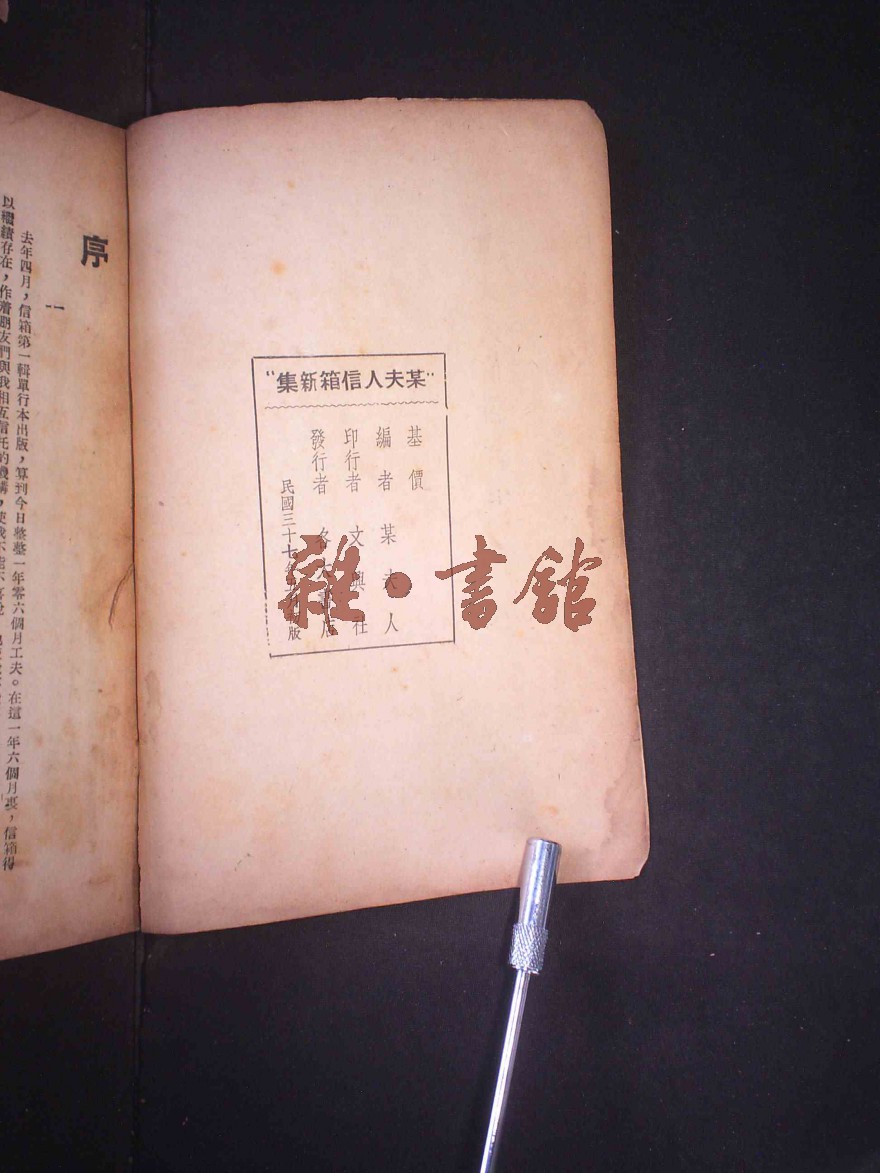 "某夫人信箱新集"
基價
編者 某夫人
印行者 文興社
發行者 各大書店
民國三十七年 版
雜·書館
序
一
去年四月，信箱第一輯單行本出版，算到今日整整一年零六個月工夫。在這一年六個月裏，信箱得
以繼續存在，作着朋友們與我相互信托的機構，使我不能不喜悅